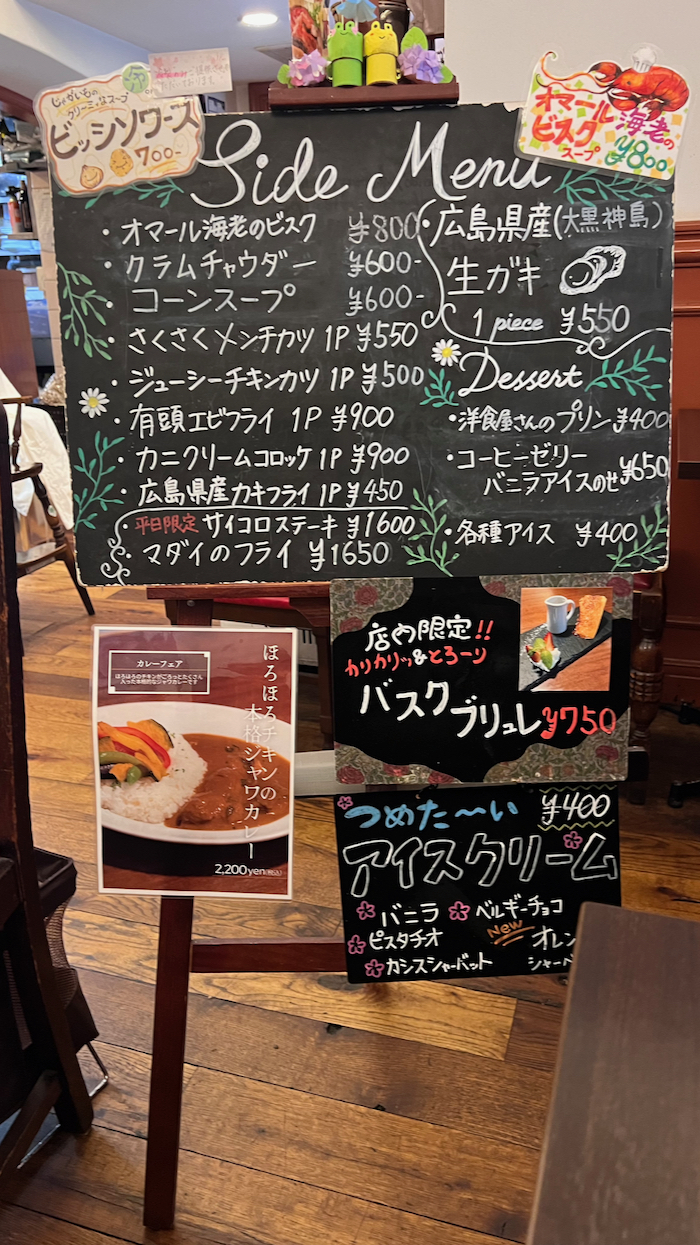 じゃがいもの
クリーミーなスープ
ビッシソワーズ
700-
オマール
海老の
ビスク
スープ
¥800
Side Menu
・オマール海老のビスク ¥800
・クラムチャウダー ¥600-
・コーンスープ ¥600-
・さくさくメンチカツ 1P ¥550
・ジューシーチキンカツ 1P ¥500
・有頭エビフライ 1P ¥900
・カニクリームコロッケ 1P ¥900
・広島県産カキフライ 1P ¥450
平日限定 サイコロステーキ ¥1600
マダイのフライ ¥1650
・広島県産(大黒神島)
生ガキ
1 piece ¥550
Dessert
・洋食屋さんのプリン ¥400
・コーヒーゼリー
バニラアイスのせ ¥650
・各種アイス ¥400
店内限定!!
カリカリッ&とろーり
バスクブリュレ ¥750
カレーフェア
ほろほろのチキンがごろっとたくさん
入った本格的なジャワカレーです
ほろほろチキンの
本格ジャワカレー
2,200yen(税込)
つめた〜い ¥400
アイスクリーム
バニラ ベルギーチョコ
ピスタチオ New オレン
カシスシャーベット シャーベ